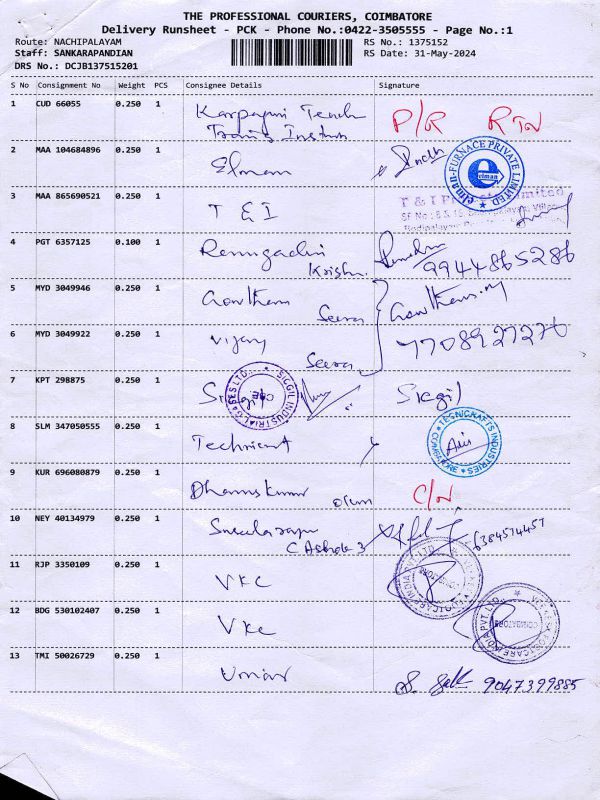 THE PROFESSIONAL COURIERS, COIMBATORE
Delivery Runsheet - PCK - Phone No.:0422-3505555 - Page No.:1
Route: NACHIPALAYAM RS No.: 1375152
Staff: SANKARAPANDIAN RS Date: 31-May-2024
DRS No.: DCJB137515201
S No Consignment No Weight PCS Consignee Details Signature
1 CUD 66055 0.250 1 P/R RTN
2 MAA 104684896 0.250 1 Elman
elman FURNACE PRIVATE LIMITED
3 MAA 865690521 0.250 1 T & I
T & I Limited
4 PGT 6357125 0.100 1 9944865286
Krishn.
5 MYD 3049946 0.250 1 Gowtham Gowtham.M
Seera
6 MYD 3049922 0.250 1 Vijay 7708927270
Seera
7 KPT 298875 0.250 1 Sicgil
SICGIL INDUSTRIAL GASES LTD. CBE
8 SLM 347050555 0.250 1
TECHNICRAFTS INDUSTRIES COIMBATORE
9 KUR 696080879 0.250 1 C/N
10 NEY 40134979 0.250 1 6384574457
C Ashok 3
11 RJP 3350109 0.250 1 VKC
12 BDG 530102407 0.250 1 VKC
VEE KESY FOOTCARE INDIA PVT. LTD. COIMBATORE
13 TMI 50026729 0.250 1 Umar 9047399885